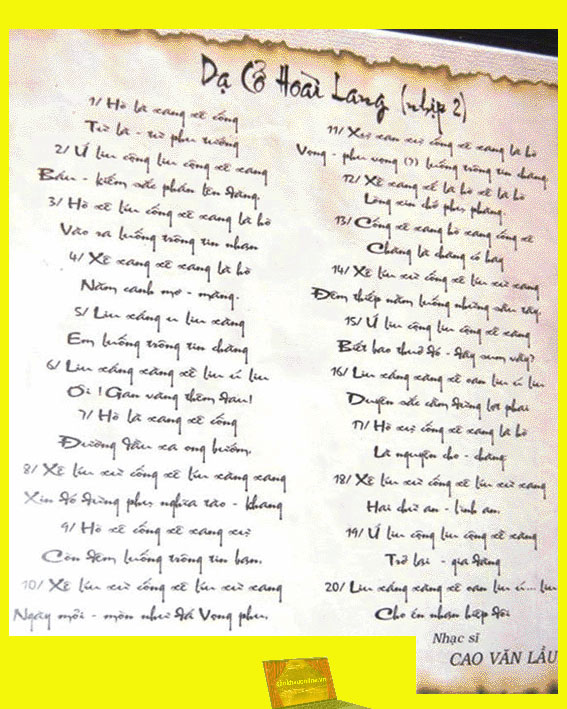 Dạ Cổ Hoài Lang (nhịp 2)
1/ Hò là xang xê cống
Từ là - từ phu tướng
2/ Ú liu cộng liu cộng xê xang
Báu - kiếm sắc phán lên đàng.
3/ Hò xê líu cống xê xang là hò
Vào ra luống trông tin nhạn
4/ Xê xang xê xang là hò
Năm canh mơ - màng.
5/ Liu xáng u liu xáng
Em luống trông tin chàng
6/ Liu xáng xáng xê liu ú liu
Ôi ! Gan vàng thêm đau!
7/ Hò là xang xê cống
Đường dầu xa ong bướm.
8/ Xê líu xừ cống xê líu xăng xang
Xin đó đừng phụ nghĩa tào - khang
9/ Hò xê cống xê xang xự
Còn đêm luống trông tin bạn.
10/ Xê líu xừ cống xê líu xừ xang
Ngày mỏi - mòn như đá Vọng phu.
11/ Xự xan xự cống xê xang là hò
Vọng - phu vọng (?) luống trông tin chàng
12/ Xê xang xê là hò xê là hò
Lòng xin chớ phụ phàng.
13/ Cống xê xang hò xang cống xê
Chàng là chàng có hay
14/ Xê líu xừ cống xê líu xừ xang
Đêm thiếp nằm luống những sầu tây
15/ Ú liu cộng liu cộng xê xang
Biết bao thuở đó - đây sum vầy?
16/ Liu xáng xáng xê oan liu ú liu
Duyên sắc cầm đừng lợt phai
17/ Hò xự cống xê xang là hò
Là nguyện cho - chàng
18/ Xê líu xừ cống xê líu xừ xang
Hai chữ an - bình an.
19/ Ú liu cộng liu cộng xê xàng
Trở lại - gia đàng
20/ Liu xáng xáng xê oan liu ú... liu
Cho én nhạn hiệp đôi
Nhạc sĩ
CAO VĂN LẦU